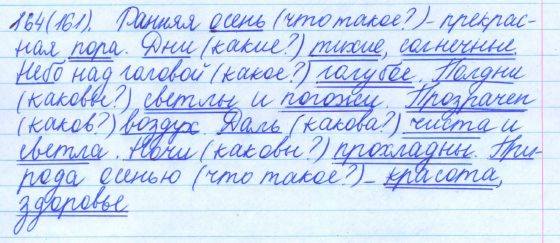 164(161). Ранняя осень (что такое?) – прекрас-
ная пора. Дни (какие?) тихие, солнечные.
Небо над головой (какое?) голубое. Полдни
(каковы?) светлы и погожи. Прозрачен
(каков?) воздух. Даль (какова?) чиста и
светла. Ночи (каковы?) прохладны. При-
рода осенью (что такое?) – красота,
здоровье